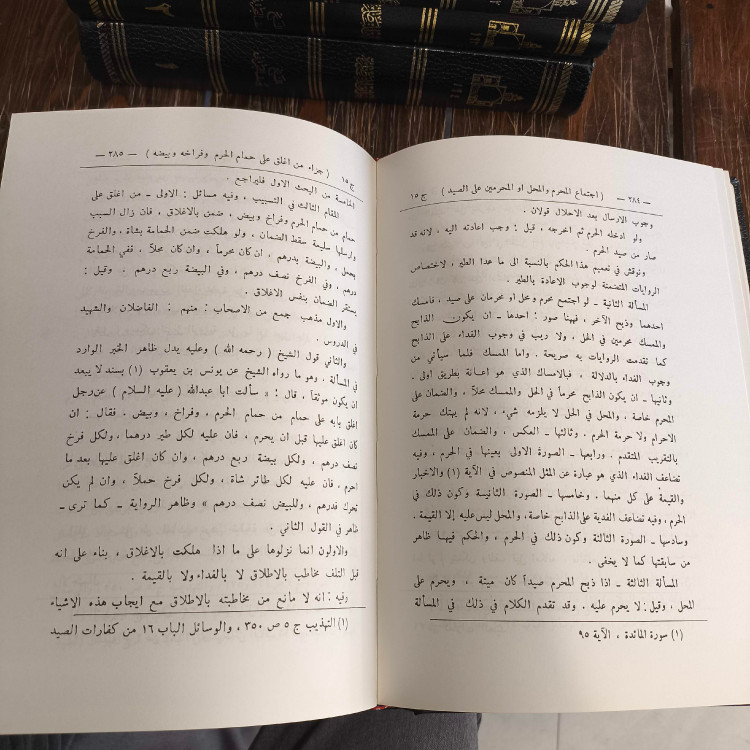 — ٣٨٤ — ( اجتماع المحرم والمحل او المحرمين على الصيد ) ج ١٥
وجوب الارسال بعد الاحلال قولان .
ولو ادخله الحرم ثم اخرجه ، قيل : وجب اعادته اليه ، لانه قد
صار من صيد الحرم .
ونوقش في تعميم هذا الحكم بالنسبة الى ما عدا الطير ، لاختصاص
الروايات المتضمنة لوجوب الاعادة بالطير .
المسألة الثانية ـ لو اجتمع محرم ومحل او محرمان على صيد ، فامسك
احدهما وذبح الآخر ، فهنا صور : احدها ـ ان يكون الذابح
والممسك محرمين في الحل ، ولا ريب في وجوب الفداء على الذابح
كما تقدمت الروايات به صريحة . واما الممسك فلما سيأتي من
وجوب الفداء بالدلالة ، فبالامساك الذي هو اعانة بطريق اولى .
وثانيها ـ ان يكون الذابح محرماً في الحل والممسك محلاً ، والضمان على
المحرم خاصة ، والمحل في الحل لا يلزمه شيء ، لانه لم يهتك حرمة
الاحرام ولا حرمة الحرم . وثالثها ـ العكس ، والضمان على الممسك
بالتقريب المتقدم . ورابعها ـ الصورة الاولى بعينها في الحرم ، وفيه
تضاعف الفداء الذي هو عبارة عن المثل المنصوص في الآية (١) والاخبار
والقيمة على كل منهما . وخامسها ـ الصورة الثانية وكون ذلك في
الحرم ، وفيه تضاعف الفدية على الذابح خاصة، والمحل ليس عليه إلا القيمة.
وسادسها ـ الصورة الثالثة وكون ذلك في الحرم ، والحكم فيها ظاهر
من سابقتها كما لا يخفى .
المسألة الثالثة ـ اذا ذبح المحرم صيداً كان ميتة ، ويحرم على
المحل ، وقيل : لا يحرم عليه . وقد تقدم الكلام في ذلك في المسألة
(١) سورة المائدة ، الآية ٩٥
ج ١٥ ( جزاء من اغلق على حمام الحرم وفراخه وبيضه ) — ٣٨٥ —
الخامسة من البحث الاول فليراجع .
المقام الثالث في التسبيب ، وفيه مسائل : الاولى ـ من اغلق على
حمام من حمام الحرم وفراخ وبيض ، ضمن بالاغلاق ، فان زال السبب
وارسلها سليمة سقط الضمان ، ولو هلكت ضمن الحمامة بشاة ، والفرخ
بحمل ، والبيضة بدرهم ، ان كان محرماً ، وان كان محلاً ، ففي الحمامة
درهم ، وفي الفرخ نصف درهم ، وفي البيضة ربع درهم . وقيل :
يستقر الضمان بنفس الاغلاق .
والاول مذهب جمع من الاصحاب : منهم : الفاضلان والشهيد
في الدروس .
والثاني قول الشيخ ( رحمه الله ) وعليه يدل ظاهر الخبر الوارد
في المسألة ، وهو ما رواه الشيخ عن يونس بن يعقوب (١) بسند لا يبعد
ان يكون موثقاً ، قال : « سألت ابا عبدالله ( عليه السلام ) عن رجل
اغلق بابه على حمام من حمام الحرم ، وفراخ ، وبيض . فقال : ان
كان اغلق عليها قبل ان يحرم ، فان عليه لكل طير درهما ، ولكل فرخ
نصف درهم ، ولكل بيضة ربع درهم ، وان كان اغلق عليها بعد ما
احرم ، فان عليه لكل طائر شاة ، ولكل فرخ حملاً ، وان لم يكن
تحرك فدرهم ، وللبيض نصف درهم » وظاهر الرواية ـ كما ترى ـ
ظاهر في القول الثاني .
والاولون انما نزلوها على ما اذا هلكت بالاغلاق ، بناء على انه
قبل التلف مخاطب بالاطلاق لا بالفداء ولا بالقيمة .
وفيه : انه لا مانع من مخاطبته بالاطلاق مع ايجاب هذه الاشياء
(١) التهذيب ج ٥ ص ٣٥٠ ، والوسائل الباب ١٦ من كفارات الصيد